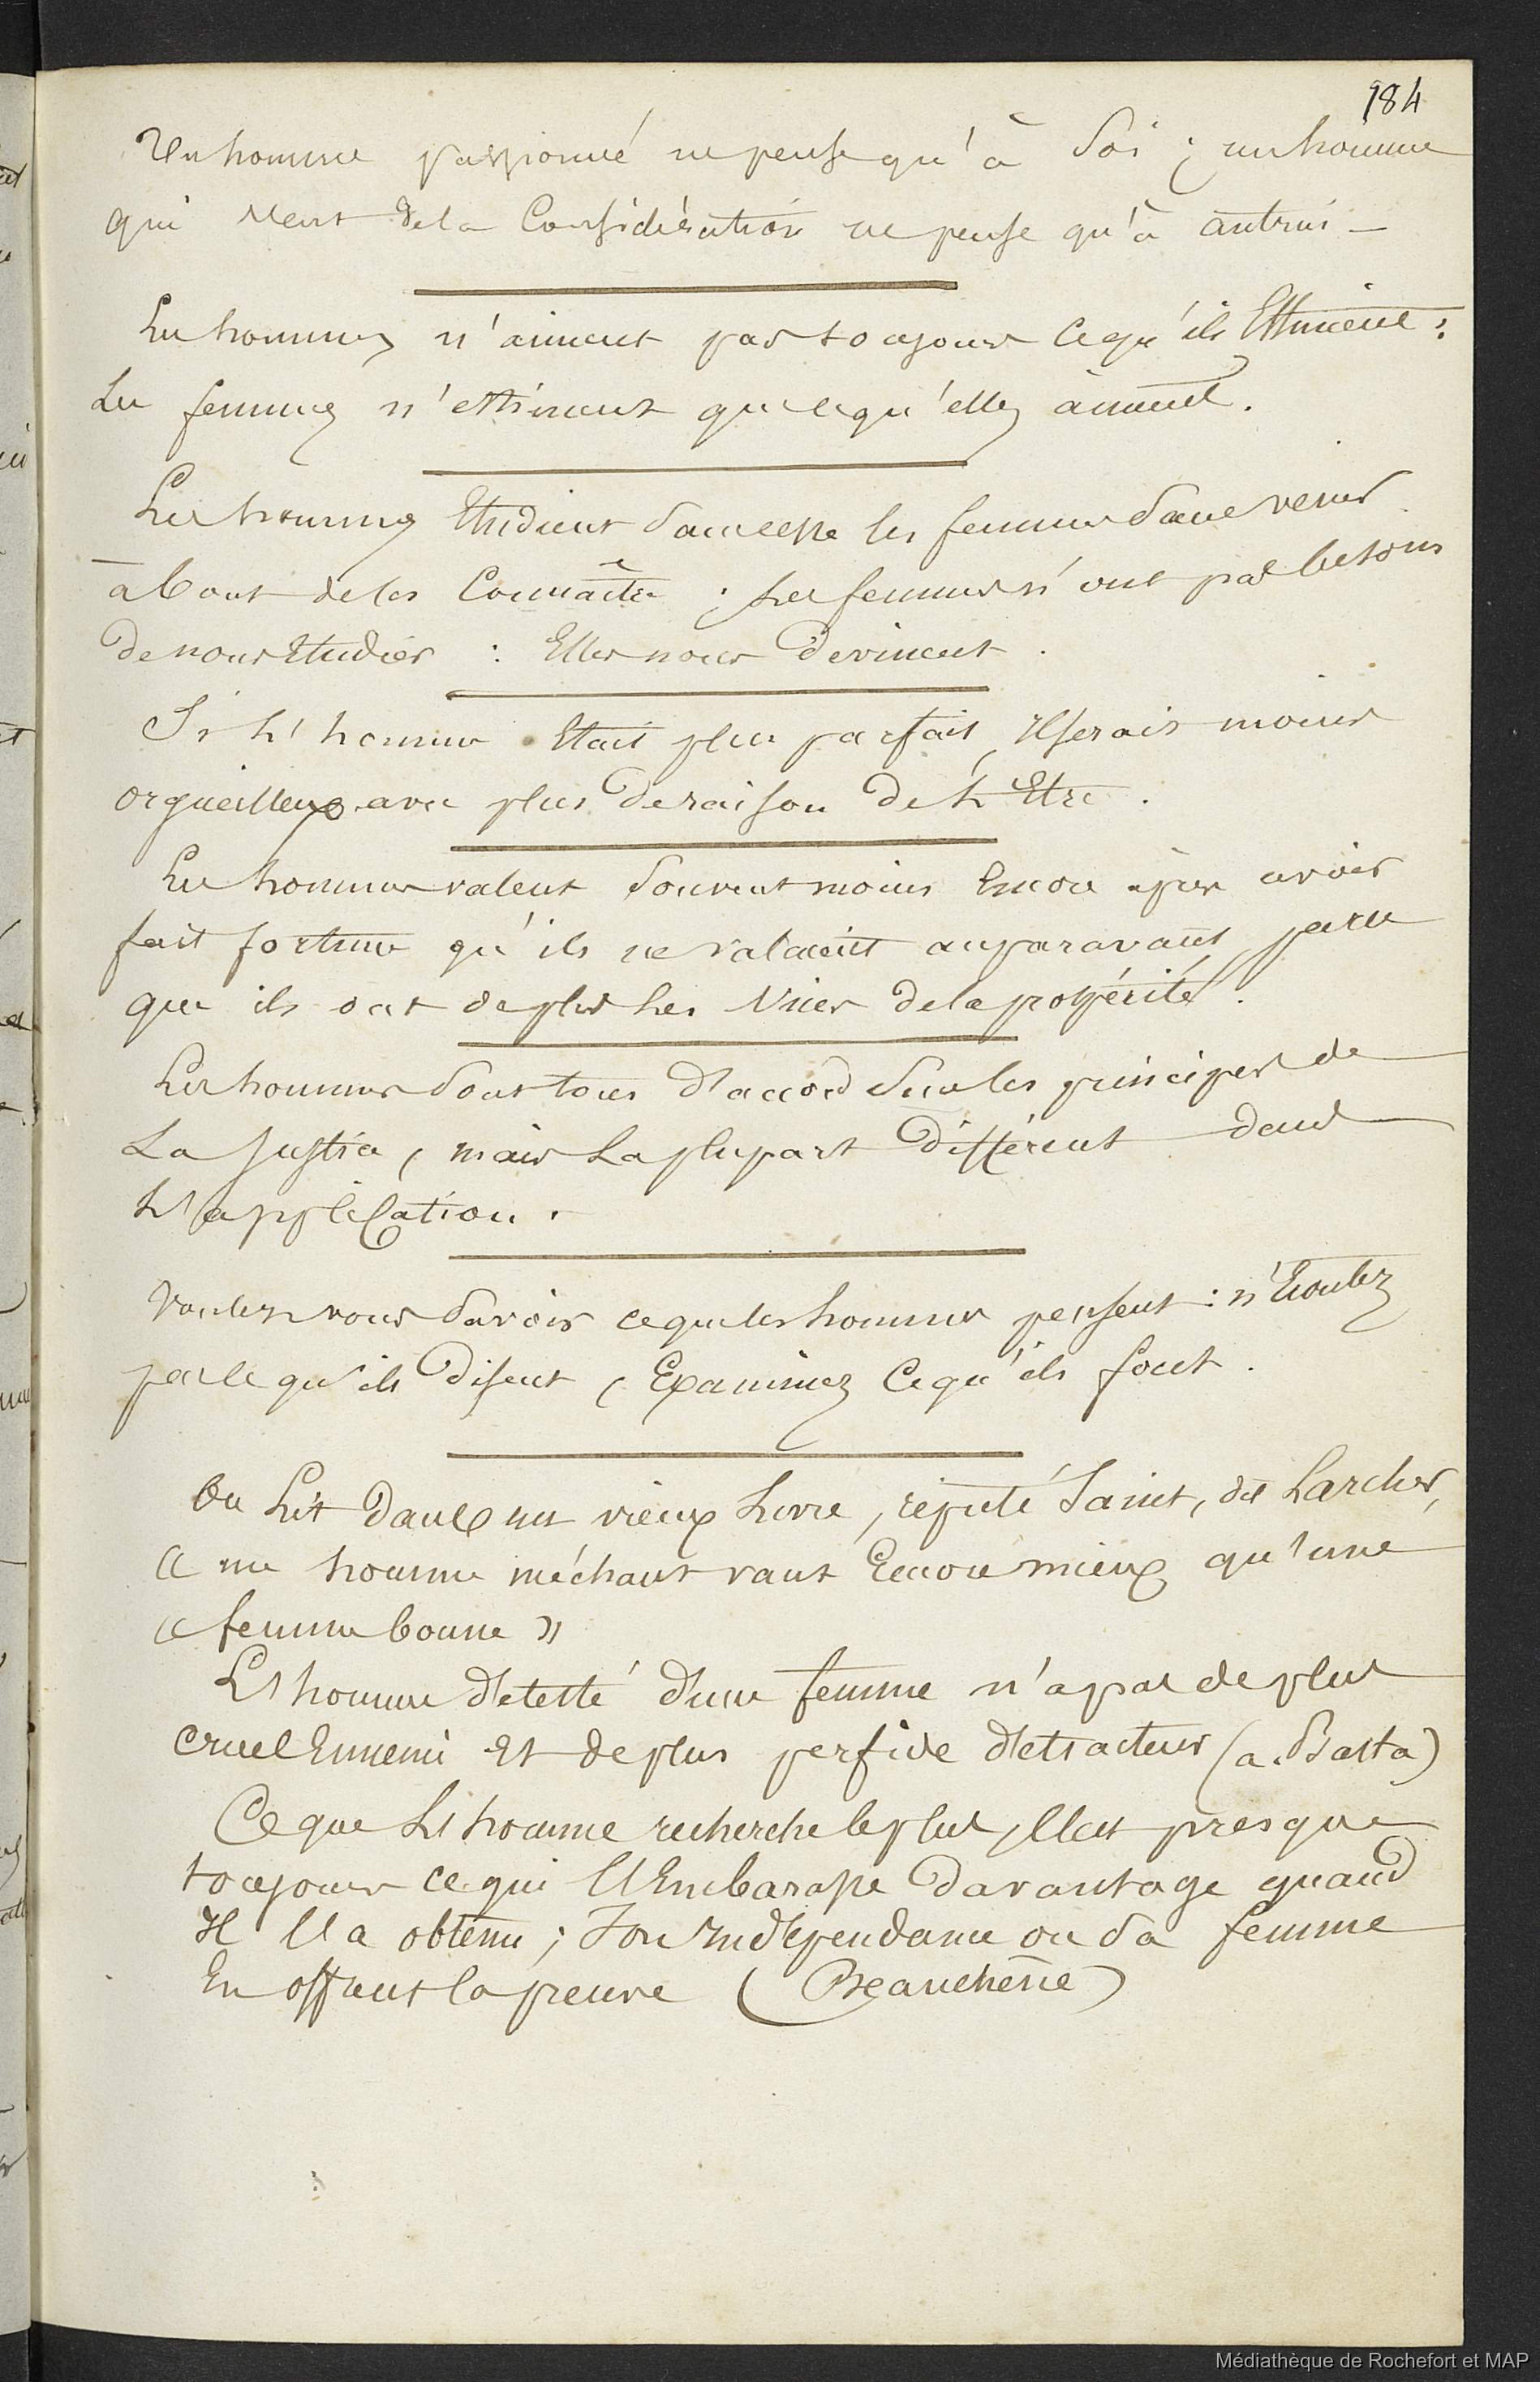 184
Un homme passionné ne pense qu'à soi ; un homme
qui veut de la Considération ne pense qu'à autrui —
Les hommes n'aiment pas toujours ce qu'ils Estiment ;
Les femmes n'estiment que ce qu'elles aiment.
Les hommes Etudient sans cesse les femmes sans venir
à bout de les Connaître ; Les femmes n'ont pas besoin
de nous Etudier : Elles nous devinent.
Si L'homme Etait plus parfait, Il serait moins
orgueilleux avec plus de raison de L'Etre.
Les hommes valent souvent moins Encore après avoir
fait fortune qu'ils ne valaient auparavant, parce
que ils ont de plus Les Vices de la prospérité.
Les hommes sont tous d'accord sur les principes de
La Justice, mais La plupart différent dans
L'application.
Voulez vous savoir ce que les hommes pensent : n'Ecoutez
pas ce qu'ils disent, Examinez Ce qu'ils font.
On Lit dans un vieux Livre, réputé Saint, dit Larcher,
« un homme méchant vaut Encore mieux qu'une
« femme bonne »
L'homme detesté d'une femme n'a pas de plus
cruel Ennemi Et de plus perfide detracteur (a. Basta)
Ce que L'homme recherche le plus, Est presque
toujours ce qui L'Embarasse davantage quand
Il L'a obtenu ; Son Independance ou sa femme
En offrent la preuve (Beauchêne)
Médiathèque de Rochefort et MAP